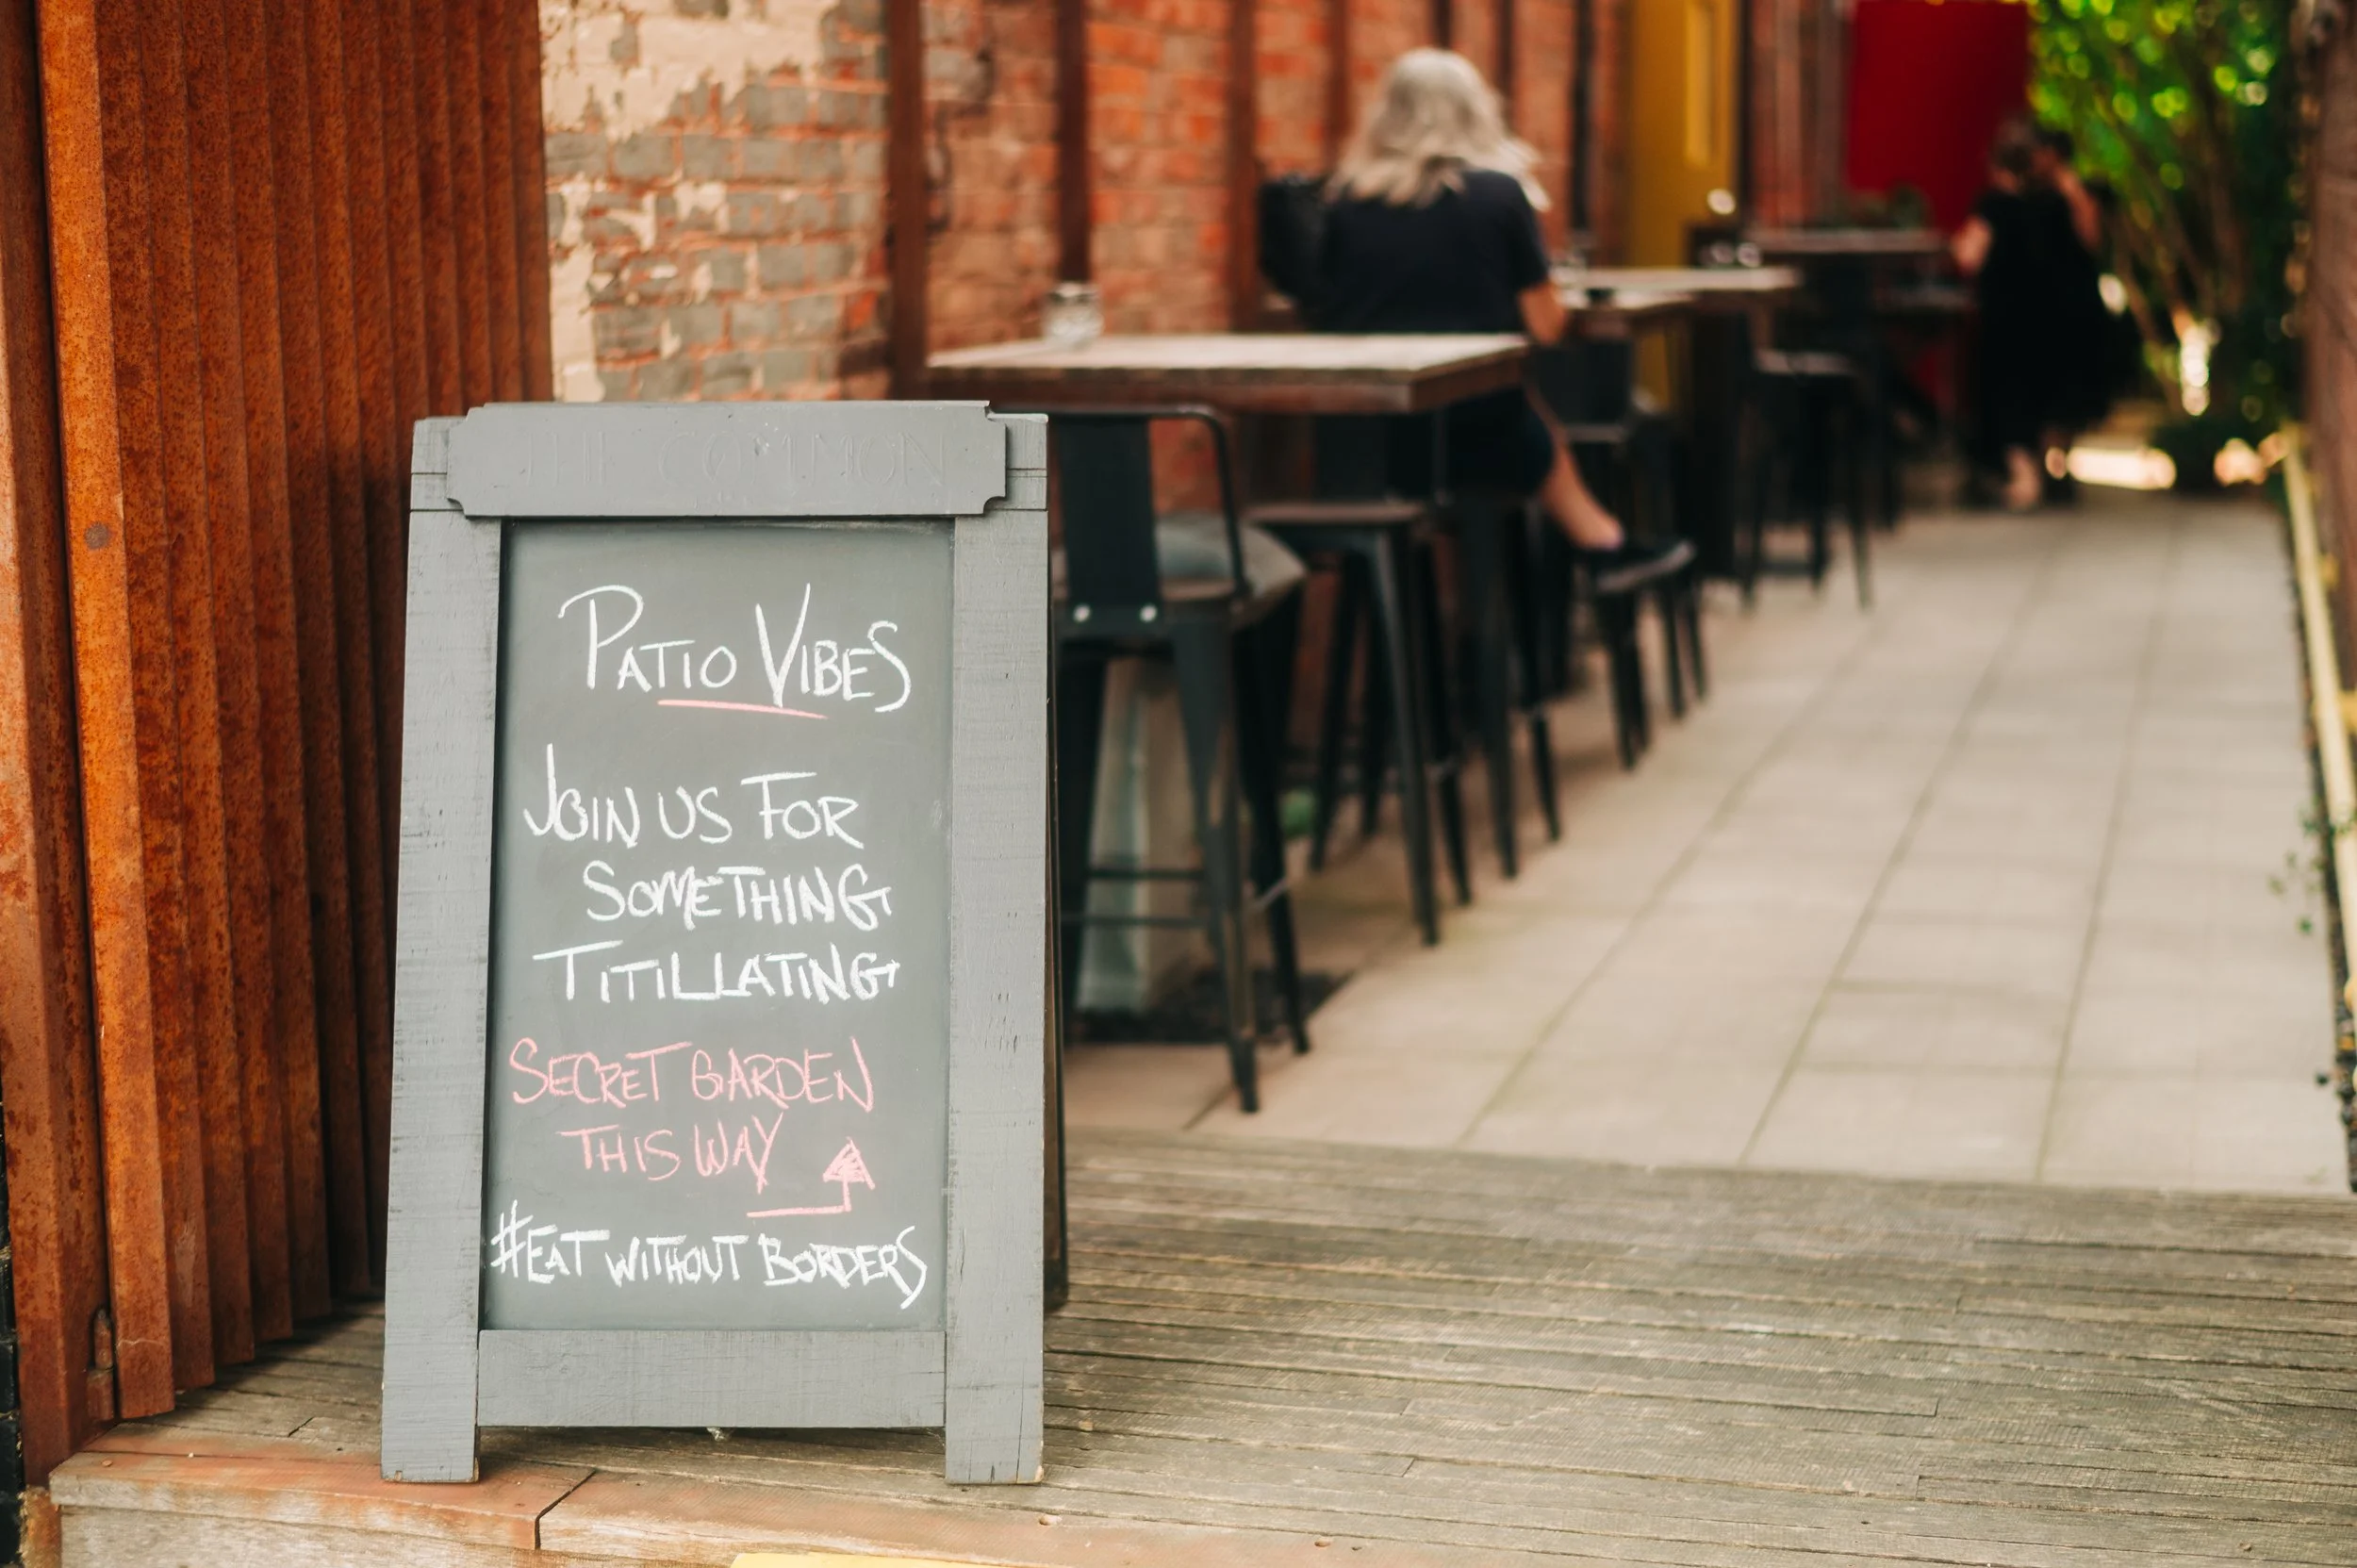 THE COMMON
PATIO VIBES
JOIN US FOR
SOMETHING
TITILLATING
SECRET GARDEN
THIS WAY
#EAT WITHOUT BORDERS